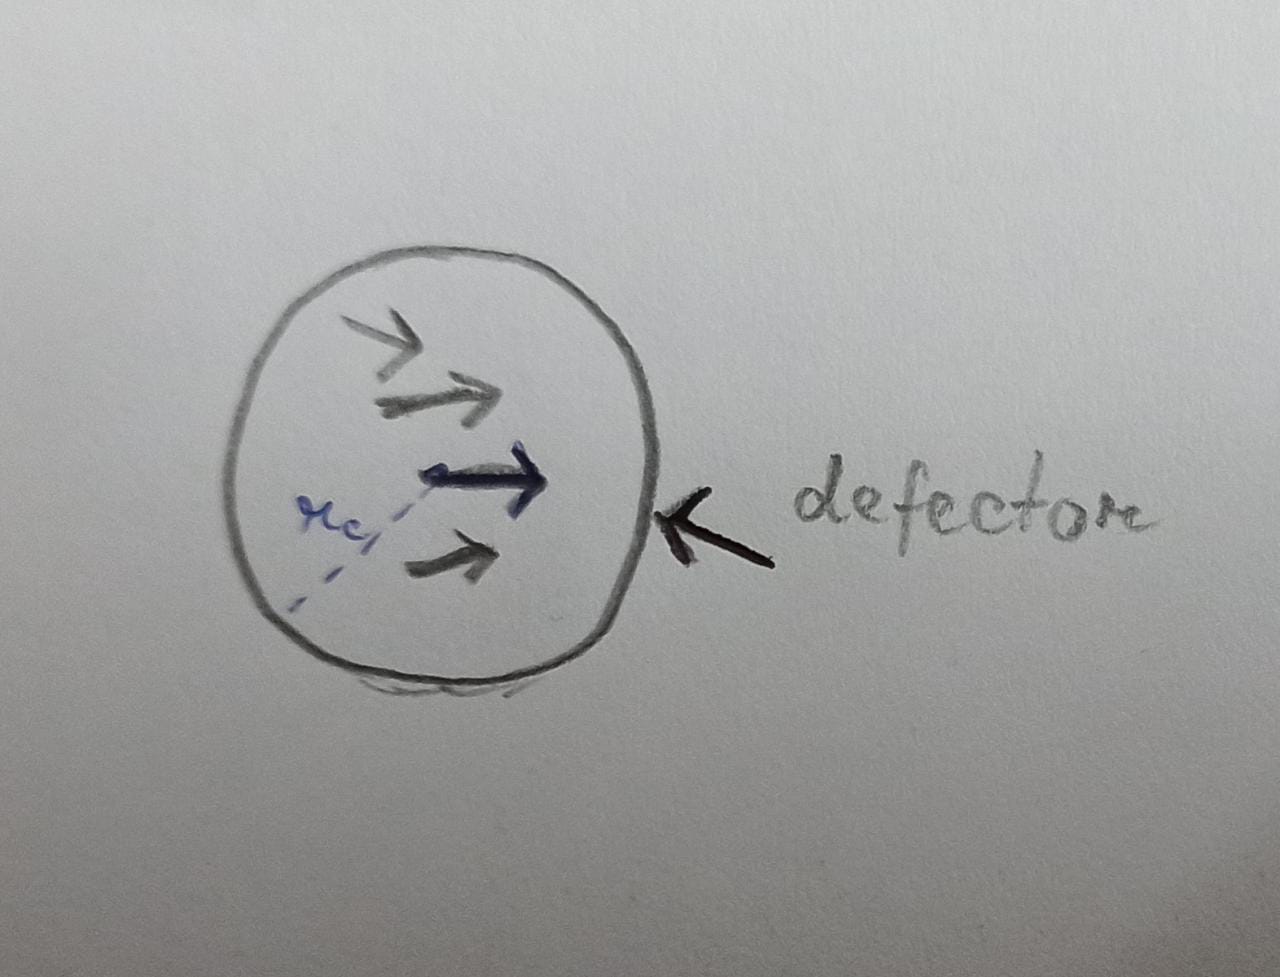 r_c
defector